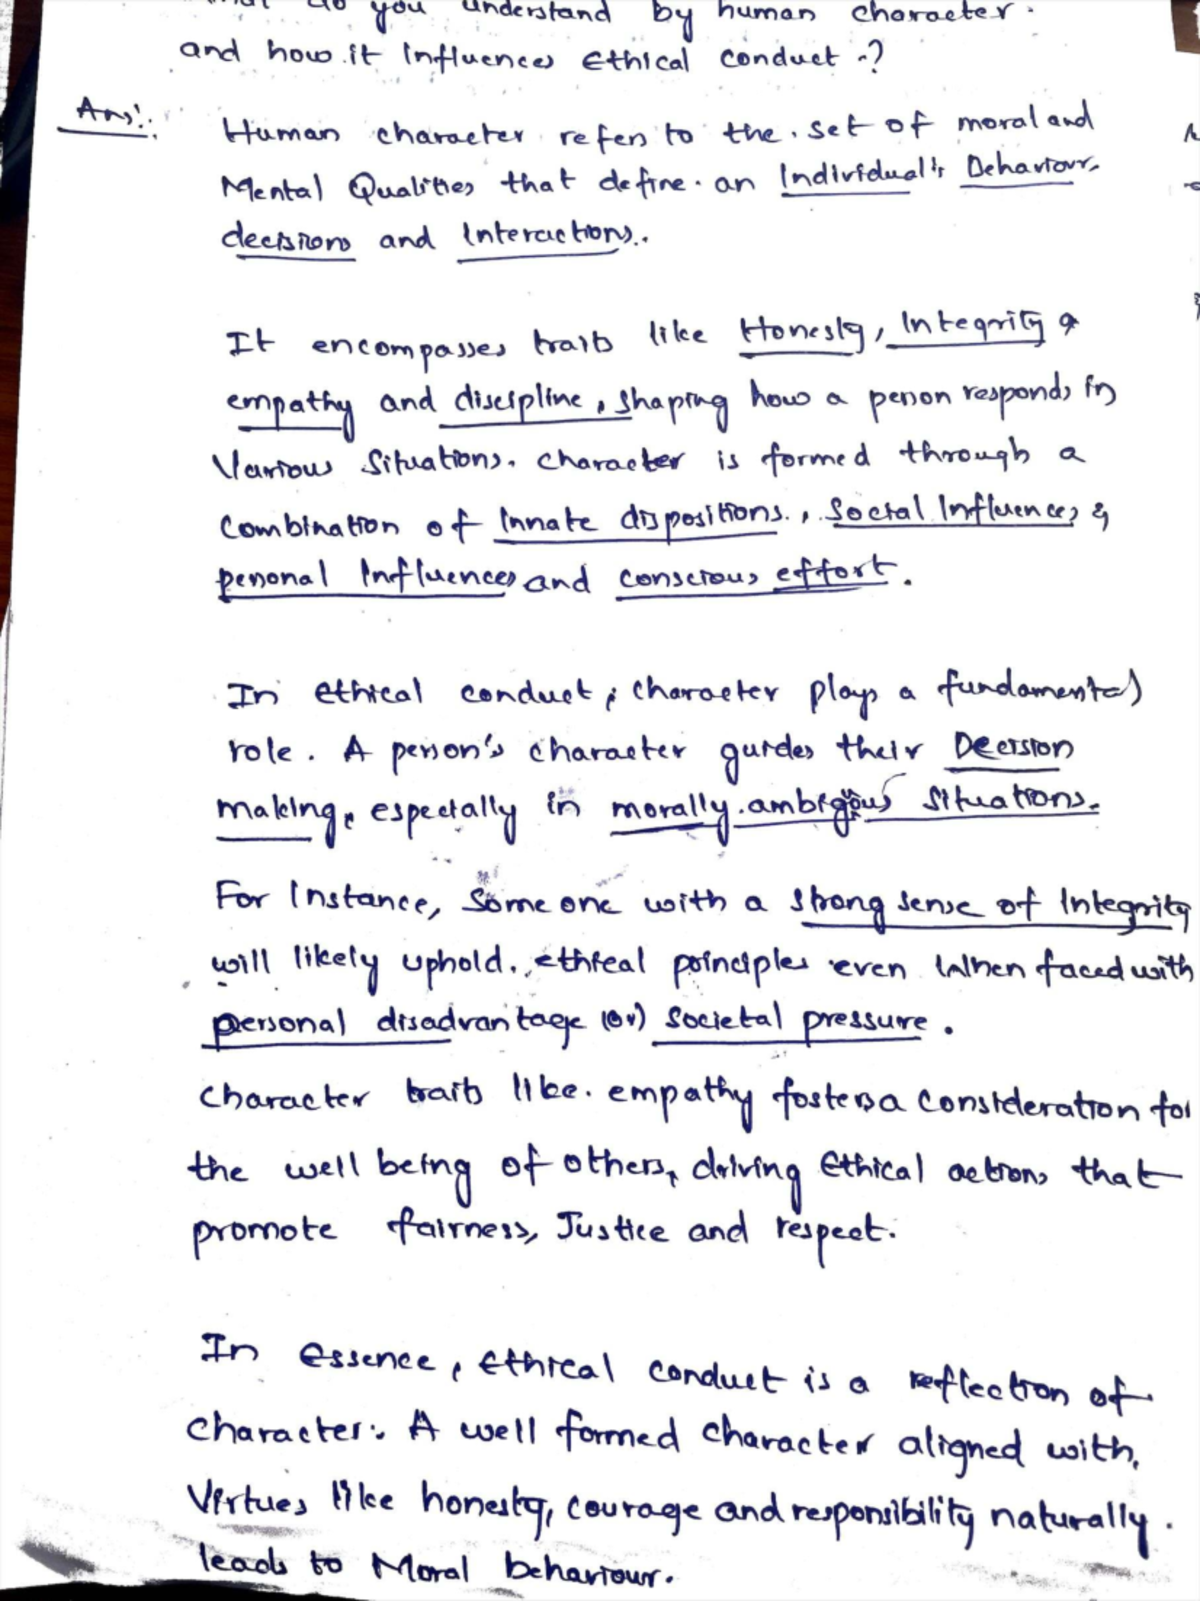 do you understand by human character.
and how it influences Ethical conduct ?
Ans:.
Human character refers to the set of moral and
Mental Qualities that define an Individual's Behaviour,
decisions and Interactions.
It encompasses traits like Honesty, Integrity &
empathy and discipline, shaping how a person responds in
Various Situations. character is formed through a
combination of Innate dispositions, Social Influences &
personal Influences and conscious effort.
In ethical conduct, character plays a fundamental
role. A person's character guides their Decision
making, especially in morally ambigous Situations.
For Instance, Some one with a strong sense of Integrity
will likely uphold ethical principles even When faced with
personal disadvantage (or) societal pressure.
character traits like empathy fosters a consideration for
the well being of others, driving Ethical actions that
promote fairness, Justice and respect.
In essence, ethical conduct is a reflection of
character. A well formed character aligned with,
Virtues like honesty, courage and responsibility naturally
leads to Moral behaviour.